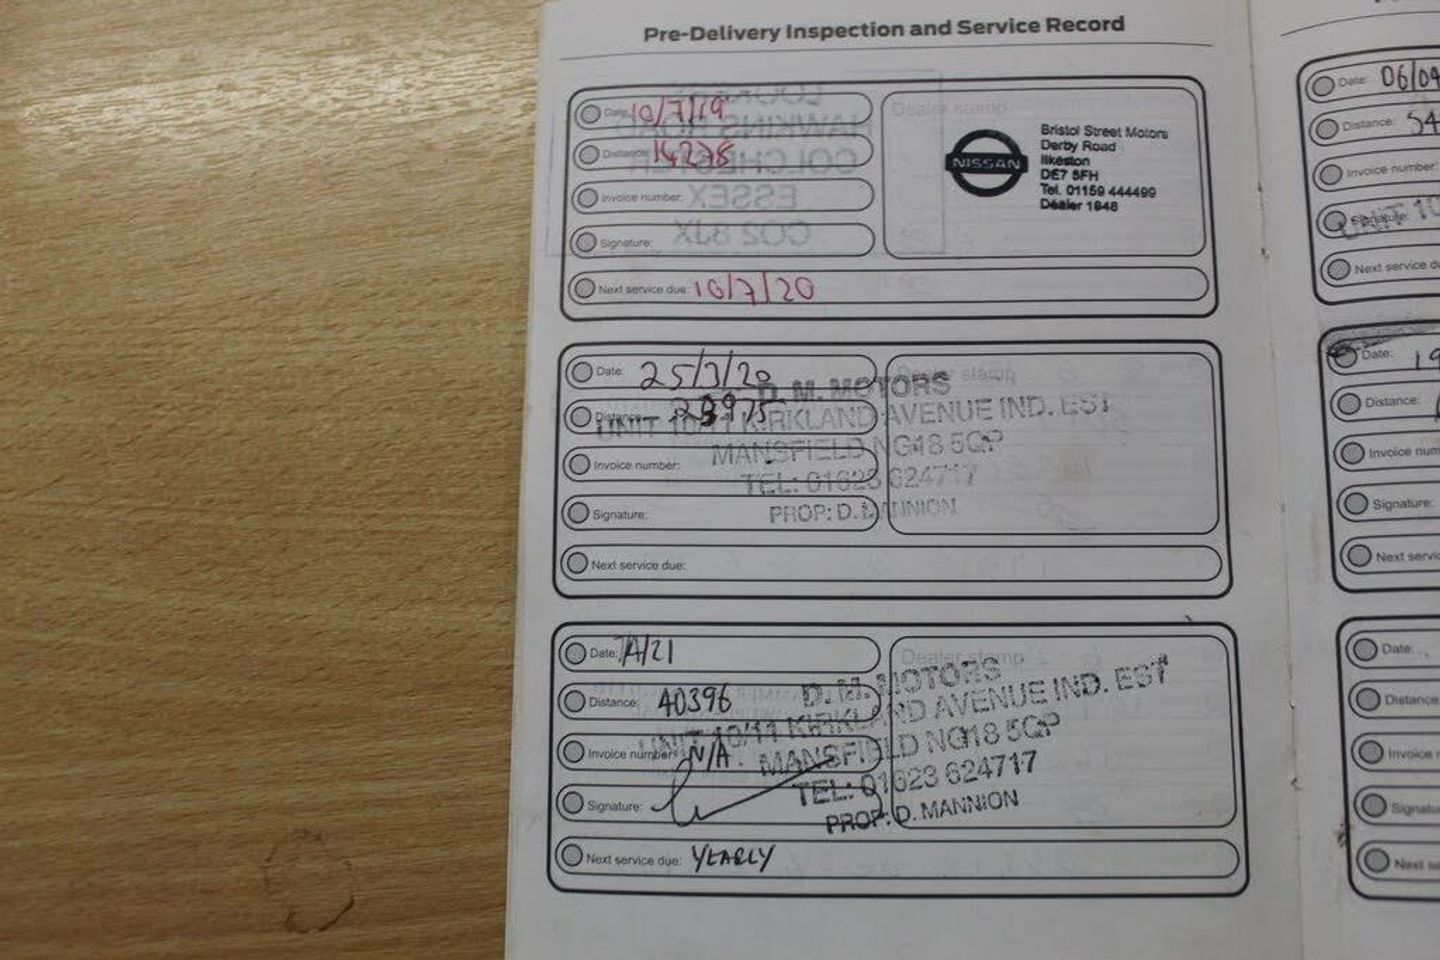 Pre-Delivery Inspection and Service Record
Date: 10/7/19
Distance: 14278
Invoice number:
Signature:
Next service due: 10/7/20
Dealer stamp
NISSAN
Bristol Street Motors
Derby Road
Ilkeston
DE7 5FH
Tel. 01159 444499
Dealer 1848
LOOKERS
HAWKINS ROAD
COLCHESTER
ESSEX
CO2 8JX
Date: 25/3/20
Distance:
Invoice number:
Signature:
Next service due:
Dealer stamp
D. M. MOTORS
UNIT 10/11 KIRKLAND AVENUE IND. EST
MANSFIELD NG18 5QP
TEL: 01623 624717
PROP: D. MANNION
Date: 7/4/21
Distance: 40396
Invoice number: N/A.
Signature:
Next service due: YEARLY
Dealer stamp
D. M. MOTORS
UNIT 10/11 KIRKLAND AVENUE IND. EST
MANSFIELD NG18 5QP
TEL: 01623 624717
PROP: D. MANNION
Date: 06/04
Distance: 54
Invoice number:
Signature:
UNIT 10
Next service
Date: 19
Distance:
Invoice
Signature:
Next
Date:
Distance
Invoice
Next